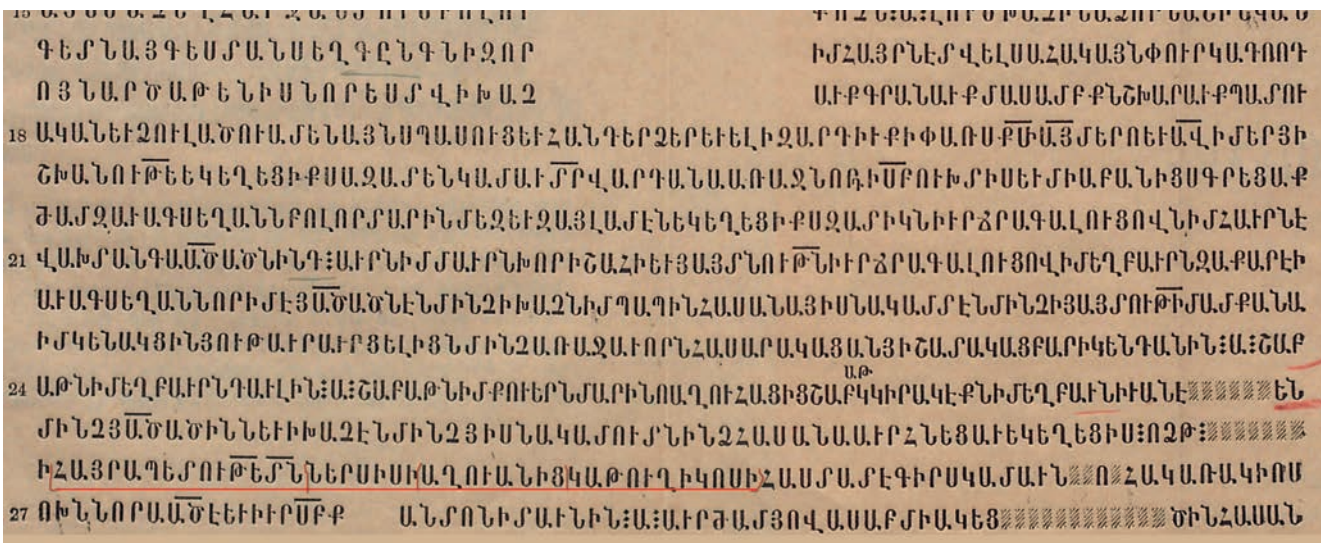 ԳԵՄՆԱՅԳԵՍՄԱՆՍԵՂԳԸՆԳՆԻԶՈՐ ԻՄՀԱՅՐՆԷՄՎԵԼՍԱՀԱԿԱՅՆՓՈՒՐԿԱԳՈՌԴ
ՈՅՆԱՐԾԱԹԵՆԻՍՆՈՐԵՍՄՎԻԽԱԶ ԱՒՔԳՐԱՆԱՒՔՄԱՍԱՄԲՔՆՇԽԱՐԱՒՔՊԱՄՈՒ
18 ԱԿԱՆԵՒԶՈՒԼԱԾՈՒԱՄԵՆԱՅՆՍՊԱՍՈՒՑԵՒՀԱՆԴԵՐՁԵՐԵՒԵԼԻԶԱՐԴԻՒՔԻՓԱՌՍՔՄԻԱՅՄԵՐՈԵՒԱՎԻՄԵՐՅԻ
ՇԽԱՆՈՒԹԵԵԿԵՂԵՑԻՔՍԱԶԱՄԵՆԿԱՄԱՒՄՐՎԱՐԴԱՆԱԱՌԱՋՆՈՌԻՍԲՈՒԽՄԻՍԵՒՄԻԱԲԱՆԻՑՍԳՐԵՑԱՔ
ԺԱՄԶԱՒԱԳՍԵՂԱՆՆԲՈԼՈՐՄԱՐԻՆՄԵԶԵՒԶԱՅԼԱՄԷՆԵԿԵՂԵՑԻՔՍԶԱՄԻԿՆԻՒՐՃՐԱԳԱԼՈՒՑՈՎՆԻՄՀԱՒՐՆԷ
21 ՎԱԽՄԱՆԳԱԱԾԱԾՆԻՆԴ:ԱՒՐՆԻՄՄԱՒՐՆԽՈՐԻՇԱՀԻԵՒՅԱՅՄՆՈՒԹՆԻՒՐՃՐԱԳԱԼՈՒՑՈՎԻՄԵՂԲԱՒՐՆԶԱՔԱՐԷԻ
ԱՒԱԳՍԵՂԱՆՆՈՐԻՄԷՅԱԾԱԾՆԷՆՄԻՆՉԻԽԱՉՆԻՄՊԱՊԻՆՀԱՍԱՆԱՅԻՍՆԱԿԱՄՄՐԷՆՄԻՆՉԻՅԱՅՄՈՒԹԻՄԱՄՔԱՆԱ
ԻՄԿԵՆԱԿՑԻՆՅՈՒԹԱՒՐԱՒՐՑԵԼԻՑՆՄԻՆՉԱՌԱՋԱՒՈՐՆՀԱՍԱՐԱԿԱՑԱՆՅԻՇԱՄԱԿԱՑԲԱՐԻԿԵՆԴԱՆԻՆ:Ա:ՇԱԲ
ԱԹ
24 ԱԹՆԻՄԵՂԲԱՒՐՆԴԱՒԼԻՆ:Ա:ՇԱԲԱԹՆԻՄՔՈՒԵՐՆՄԱՐԻՆՈԱՂՈՒՀԱՑԻՑՇԱԲԿԿԻՐԱԿԷՔՆԻՄԵՂԲԱՒՆԻՒԱՆԷ ԵՆ
ՄԻՆՉՅԱԾԱԾԻՆՆԵՒԻԽԱՉԷՆՄԻՆՉՅԻՍՆԱԿԱՄՈՒՄՆԻՆՉՀԱՍԱՆԱԱՒՐՀՆԵՑԱՒԵԿԵՂԵՑԻՍ:ՈՉԹ:
ԻՀԱՅՐԱՊԵՄՈՒԹԵՄՆՆԵՐՍԻՍԻԱՂՈՒԱՆԻՑԿԱԹՈՒՂԻԿՈՍԻՀԱՍՄԱՄԷԳԻՐՍԿԱՄԱՒՆ Ո ՀԱԿԱՌԱԿԻՌՍ
27 ՈԽՆՆՈՐԱԱԾԷԵՒԻՒՐՍԲՔ ԱՆՄՈՆԻՄԱՒՆԻՆ:Ա:ԱՒՐԺԱՄՅՈՎԱՍԱԲՄԻԱԿԵՑ ԾԻՆՀԱՍԱՆ